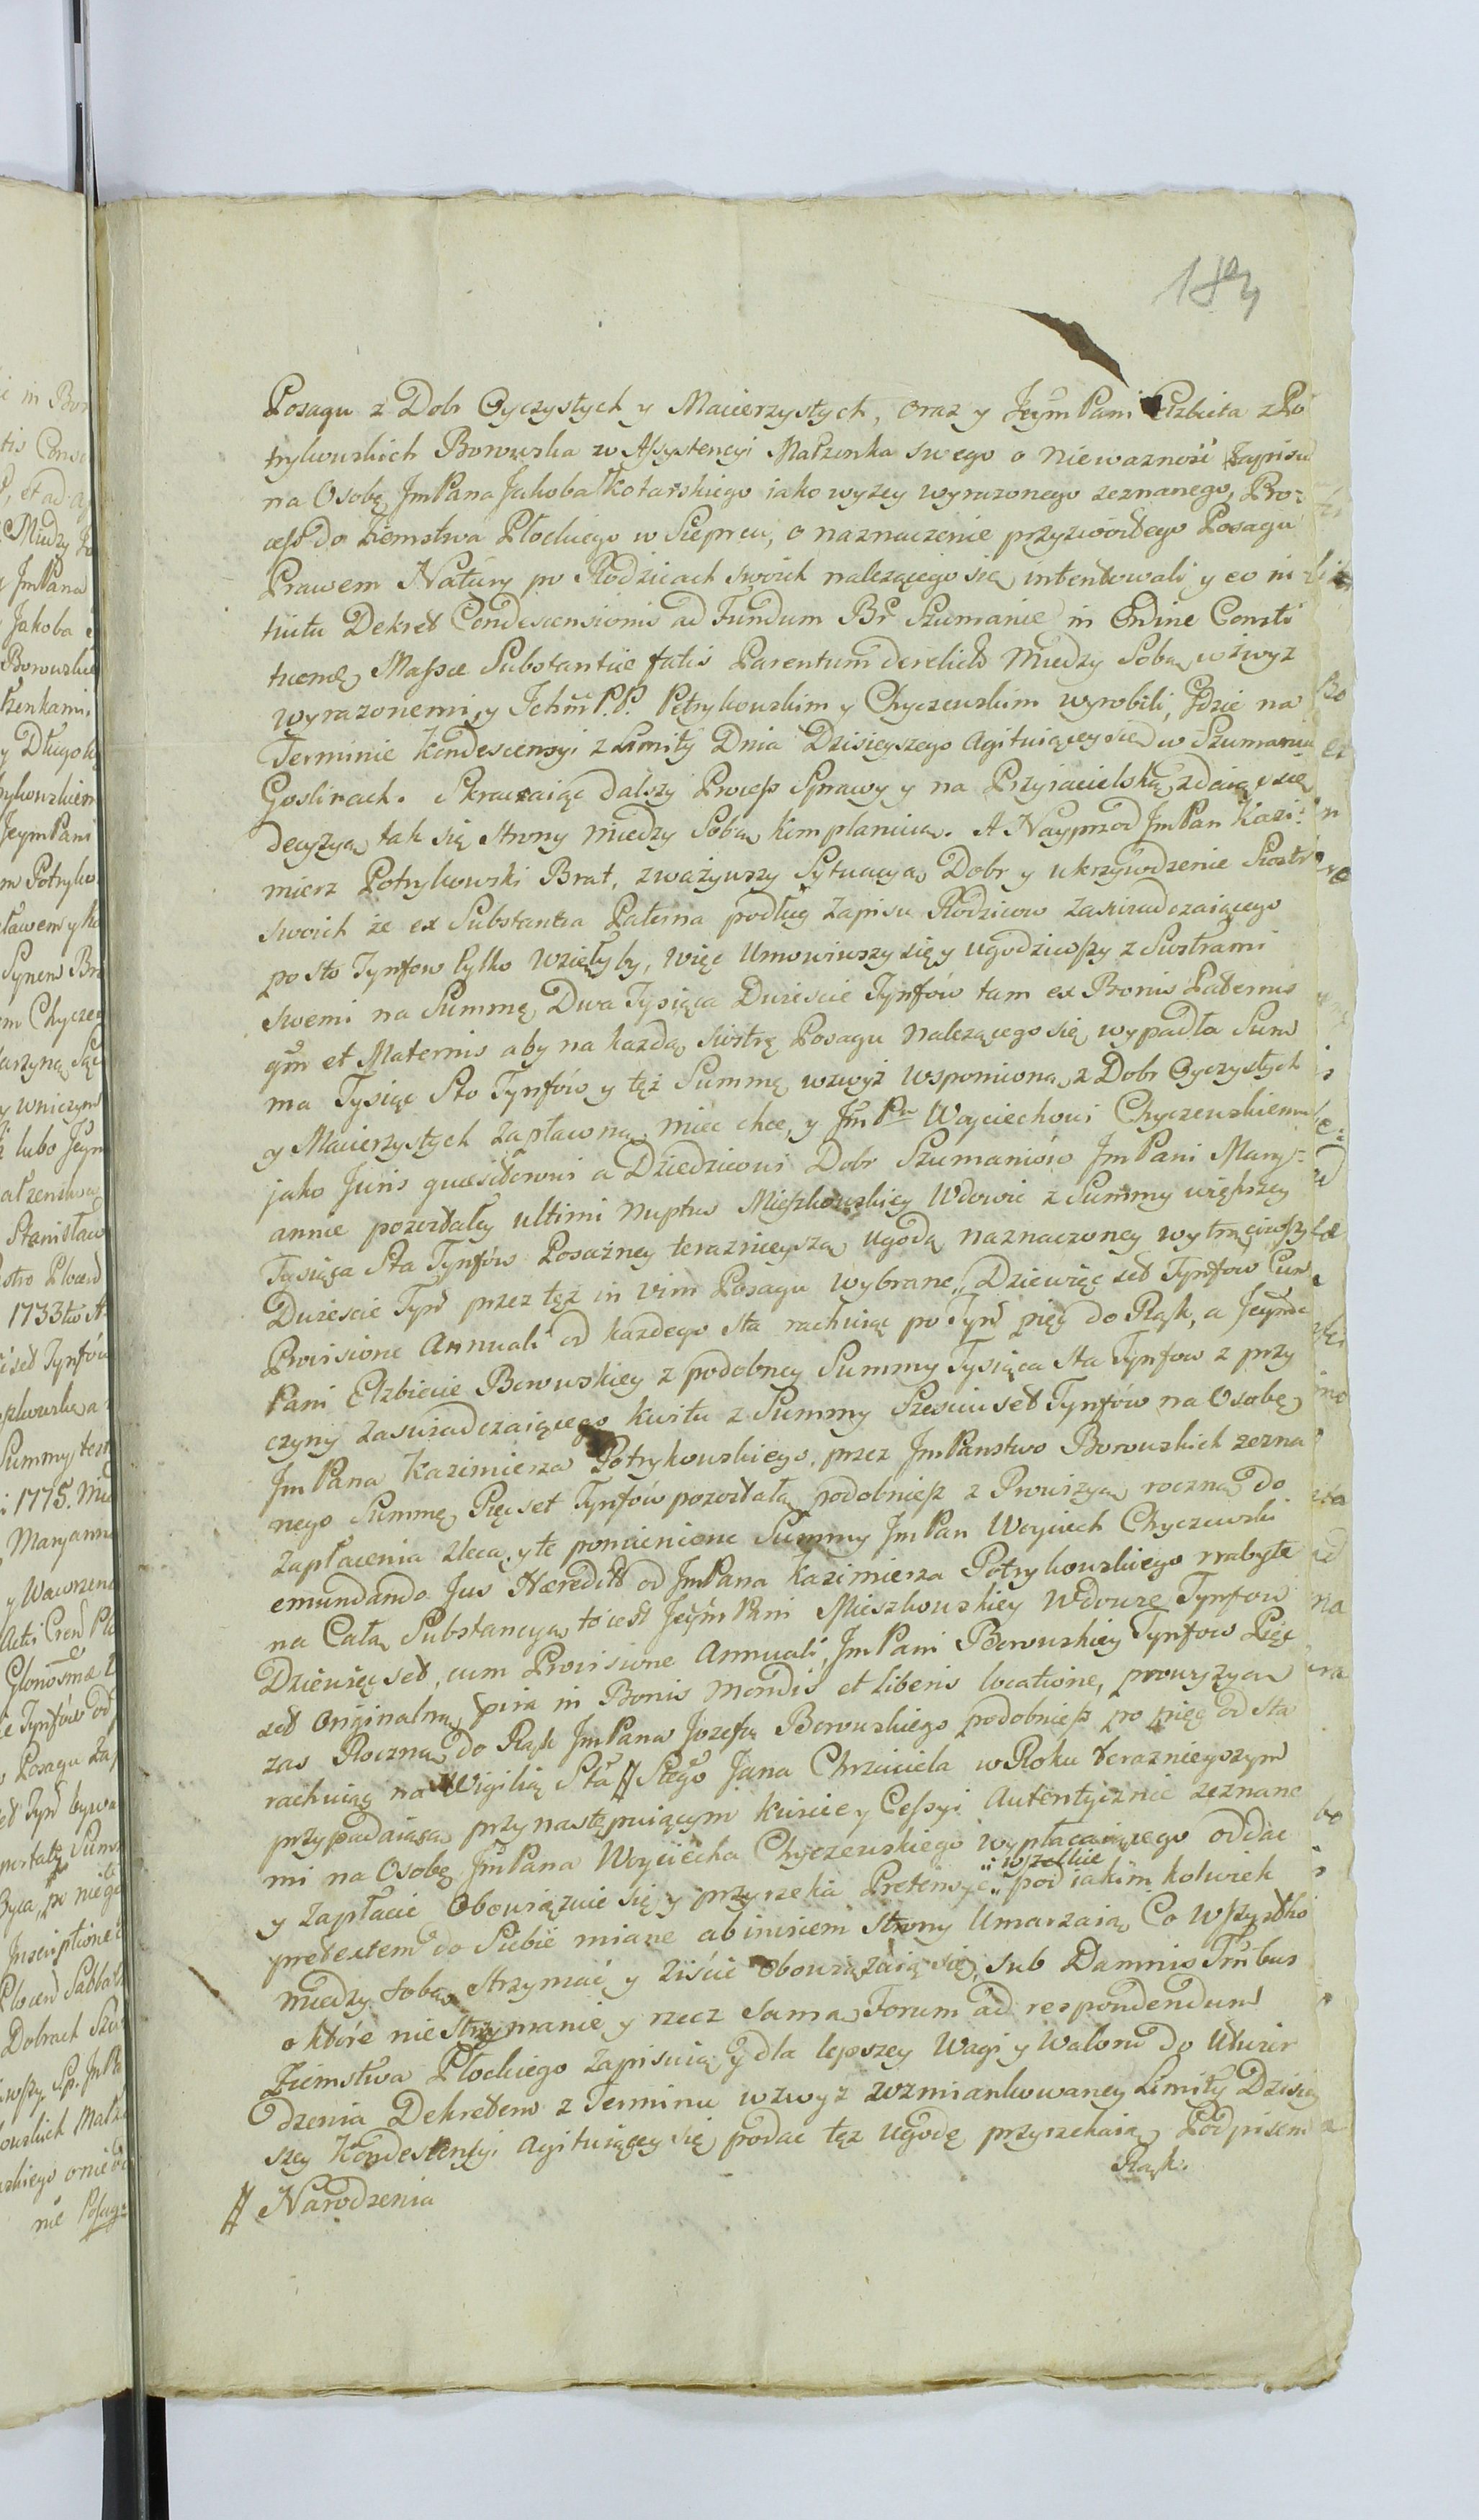 183
Posagu z Dobr Oyczystych y Macierzystych, oraz y Jeym Pani Elzbieta z Po
trykowskich Borowska w Assystencyi Małzonka swego o niewaznosć Zapisu
na Osobę Jm Pana Jakoba Kotarskiego iako wyzey wyrazonego zeznanego, Pro-
cess do Ziemstwa Płockiego w Sieprcu, o naznaczenie przyzwoitego Posagu
Prawem Natury po Rodzicach swoich nalezącego się intentowali y eo in
tuitu Dekret Condescensionis ad Fundum Br. Szumanie in Ordine Consti
tuendę Massae Substantiae fatis Parentum derelictę Miedzy Sobą wzwyz
wyrazonemi, y Jchm P.P. Petrykowskim y Chyczewskim wyrobili, Gdzie na
Terminie Kondescensyi z Limity Dnia Dzisieyszego Agituiącey się w Szumaniu
Goslinach. Skracaiąc dalszy Process Sprawy y na Przyiacielską zdaiąc się
decyzyą tak się strony miedzy Sobą komplanuią. A Nayprzod Jm Pan Kazi-
mierz Potrykowski Brat, zważywszy Sytuacyą Dobr y ukrzywdzenie Siostr
swoich że ex Substantia Paterna podług Zapisu Rodzicow zaswiadczaiącego
po sto Tynfow tylko wzięłyby, więc Umowiwszy się y ugodziwszy z Siostrami
swemi na Summę Dwa Tysiąca Dwiescie Tynfów tam ex Bonis Paternis
qm et Maternis aby na kazdą siostrę Posagu nalezącego się wypadła Sum
ma Tysiąc Sto Tynfów y tęż Summę wzwyż wspomioną z Dobr Oyczystych
y Macierzystych zapłaconą miec chce, y Jm Pu Woyciechowi Chyczewskiemu
jako Juris quaesitorowi a Dziedzicowi Dobr Szumaniow Jm Pani Mary-
annie pozostałey ultimi nuptus Mieszkowskiey Wdowie z Summy większey
Tysiąca Sta Tynfów Posażney teraznieyszą ugodą naznaczoney wytrąciwszy
Dwiescie Tynf przez tęż in vim Posagu wybrane, Dziewięc set Tynfow Cum
Provisione Annuali od kazdego sta rachuiąc po Tynf pięć do Rąk, a Jeymc
Pani Elzbiecie Borowskiey z podobney Summy Tysiąca sta Tynfow z przy
czyny zaswiadczaiącego kwitu z Summy Szesciuset Tynfów na Osobę
Jm Pana Kazimierza Potrykowskiego, przez Jm Panstwo Borowskich zezna
nego Summę Pięcset Tynfów pozostałą podobniesz z Prowizyą roczną do
zapłacenia zleca, y te pomienione Summy Jm Pan Woyciech Chyczewski
emundando Jus Haeredit: od Jm Pana Kazimierza Potrykowskiego nabyte
na Całą Substancyą to iest Jeym Pani Mieszkowskiey Wdowie Tynfow
Dziewięc set, cum Provisione Annuali, Jm Pani Borowskiey Tynfow Pięc
set Originalną pia in Bonis Mondis et Liberis locatione, prowizyą
zas Roczną do Rąk Jm Pana Jozefa Borowskiego podobniesz po pięc od sta
rachuiąc na Wigilią Sta # Stego Jana Chrzciciela w Roku teraznieyszym
przypadaiącą przy następuiącym kwicie y Cessyi Autentycznie zeznane
mi na Osobę Jm Pana Woyciecha Chyczewskiego wypłacaiącego oddac
y zapłacic Obowiązuie się y przyrzeka Pretensye „wszelkie„ pod iakim kolwiek
pretextem do Siebie miane abinvicem strony Umarzaią Co wszystko
miedzy sobą strzymać y ziscic obowiązaią się, sub Damnis Trribus
o które niestrzymanie y rzecz samą Forum ad respondendum
Ziemstwa Płockiego zapisuią y dla lepszey Wagi y Waloru do Utwier
dzenia Dekretem z Terminu wzwyz wzmiankowaney Limity Dzisiey
szey Kondescensyi agituiącey się podac tęz Ugodę przyrzekaią Podpisem
Rąk.
# Narodzenia